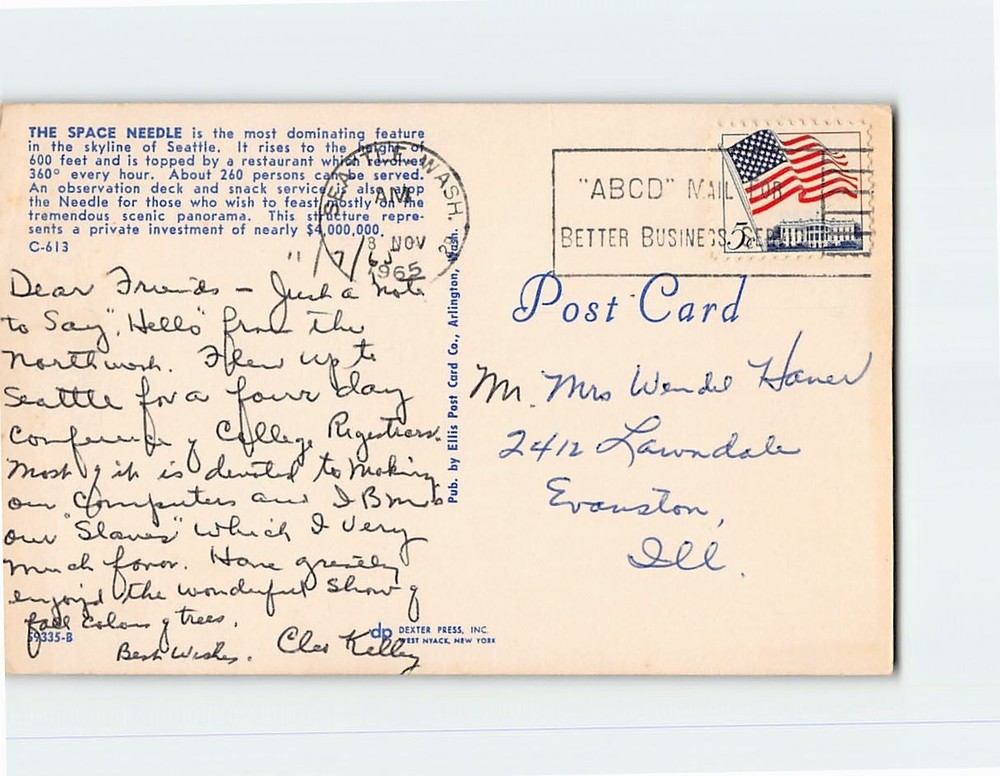 THE SPACE NEEDLE is the most dominating feature
in the skyline of Seattle. It rises to the height of
600 feet and is topped by a restaurant which revolves
360° every hour. About 260 persons can be served.
An observation deck and snack service also top
the Needle for those who wish to feast mostly on the
tremendous scenic panorama. This structure repre-
sents a private investment of nearly $4,000,000.
C-613
SEATTLE, WASH.
AM
8 NOV
1965
"ABCD" MAIL FOR
BETTER BUSINESS SER
5c
11/7/65
Dear Friends – Just a note
to Say "Hello" from the
Northwest. Flew up to
Seattle for a four day
Conference of College Registrars.
Most of it is devoted to Making
our Computers and IBM's
our "Slaves" which I very
much favor. Have greatly
enjoyed the wonderful show of
fall colors of trees.
Best Wishes. Cleo Kelley
59335-B
dp DEXTER PRESS, INC.
WEST NYACK, NEW YORK
Pub. by Ellis Post Card Co., Arlington, Wash.
Post Card
Mr. Mrs Wendel Haner
2412 Lawndale
Evanston,
Ill.